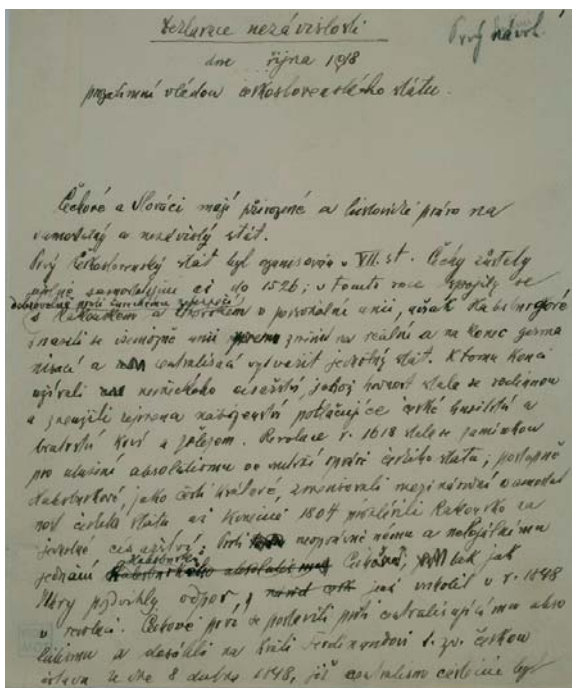 Deklarace nezávislosti
Prvý návrh.
dne října 1918
prozatimní vládou československého státu.
Čechové a Slováci mají přirozené a historické právo na
samostatný a nezávislý stát.
Prvý Československý stát byl organisován v VII. st. Čechy zůstaly
úplně samostatnými až do 1526; v tomto roce spojily se
dobrovolně proti tureckému nebezpečí
s Rakouskem a Uherskem v personální unii, však Habsburgové
snažili se všemožně unii změnit na reální a na konec germa
nisací a centralisací vytvořit jednotný stát. K tomu konci
užívali německého císařství, jehož hodnost stala se rodinnou
a zneužili zejména náboženství potlačujíce české husitství a
bratrství krví a železem. Revoluce r. 1618 stala se záminkou
pro utužení absolutismu ve vnitřní správě českého státu; postupně
Habsburkové jako čeští králové, zmenšovali mezinárodní samostat
nost českého státu až konečně 1804 prohlásili Rakousko za
jednotné císařství. Proti nesprávnému a neloyálnímu
jednání Habsburků Čechové, tak jak
Maďaři pozdvihly odpor, jenž vrcholil v r. 1848
v revoluci. Čechové prvé se postavili proti centralisujícímu abso
lutismu a dosáhli na králi Ferdinandovi I. zv. českou
ústavu ze dne 8 dubna 1848, již centralism